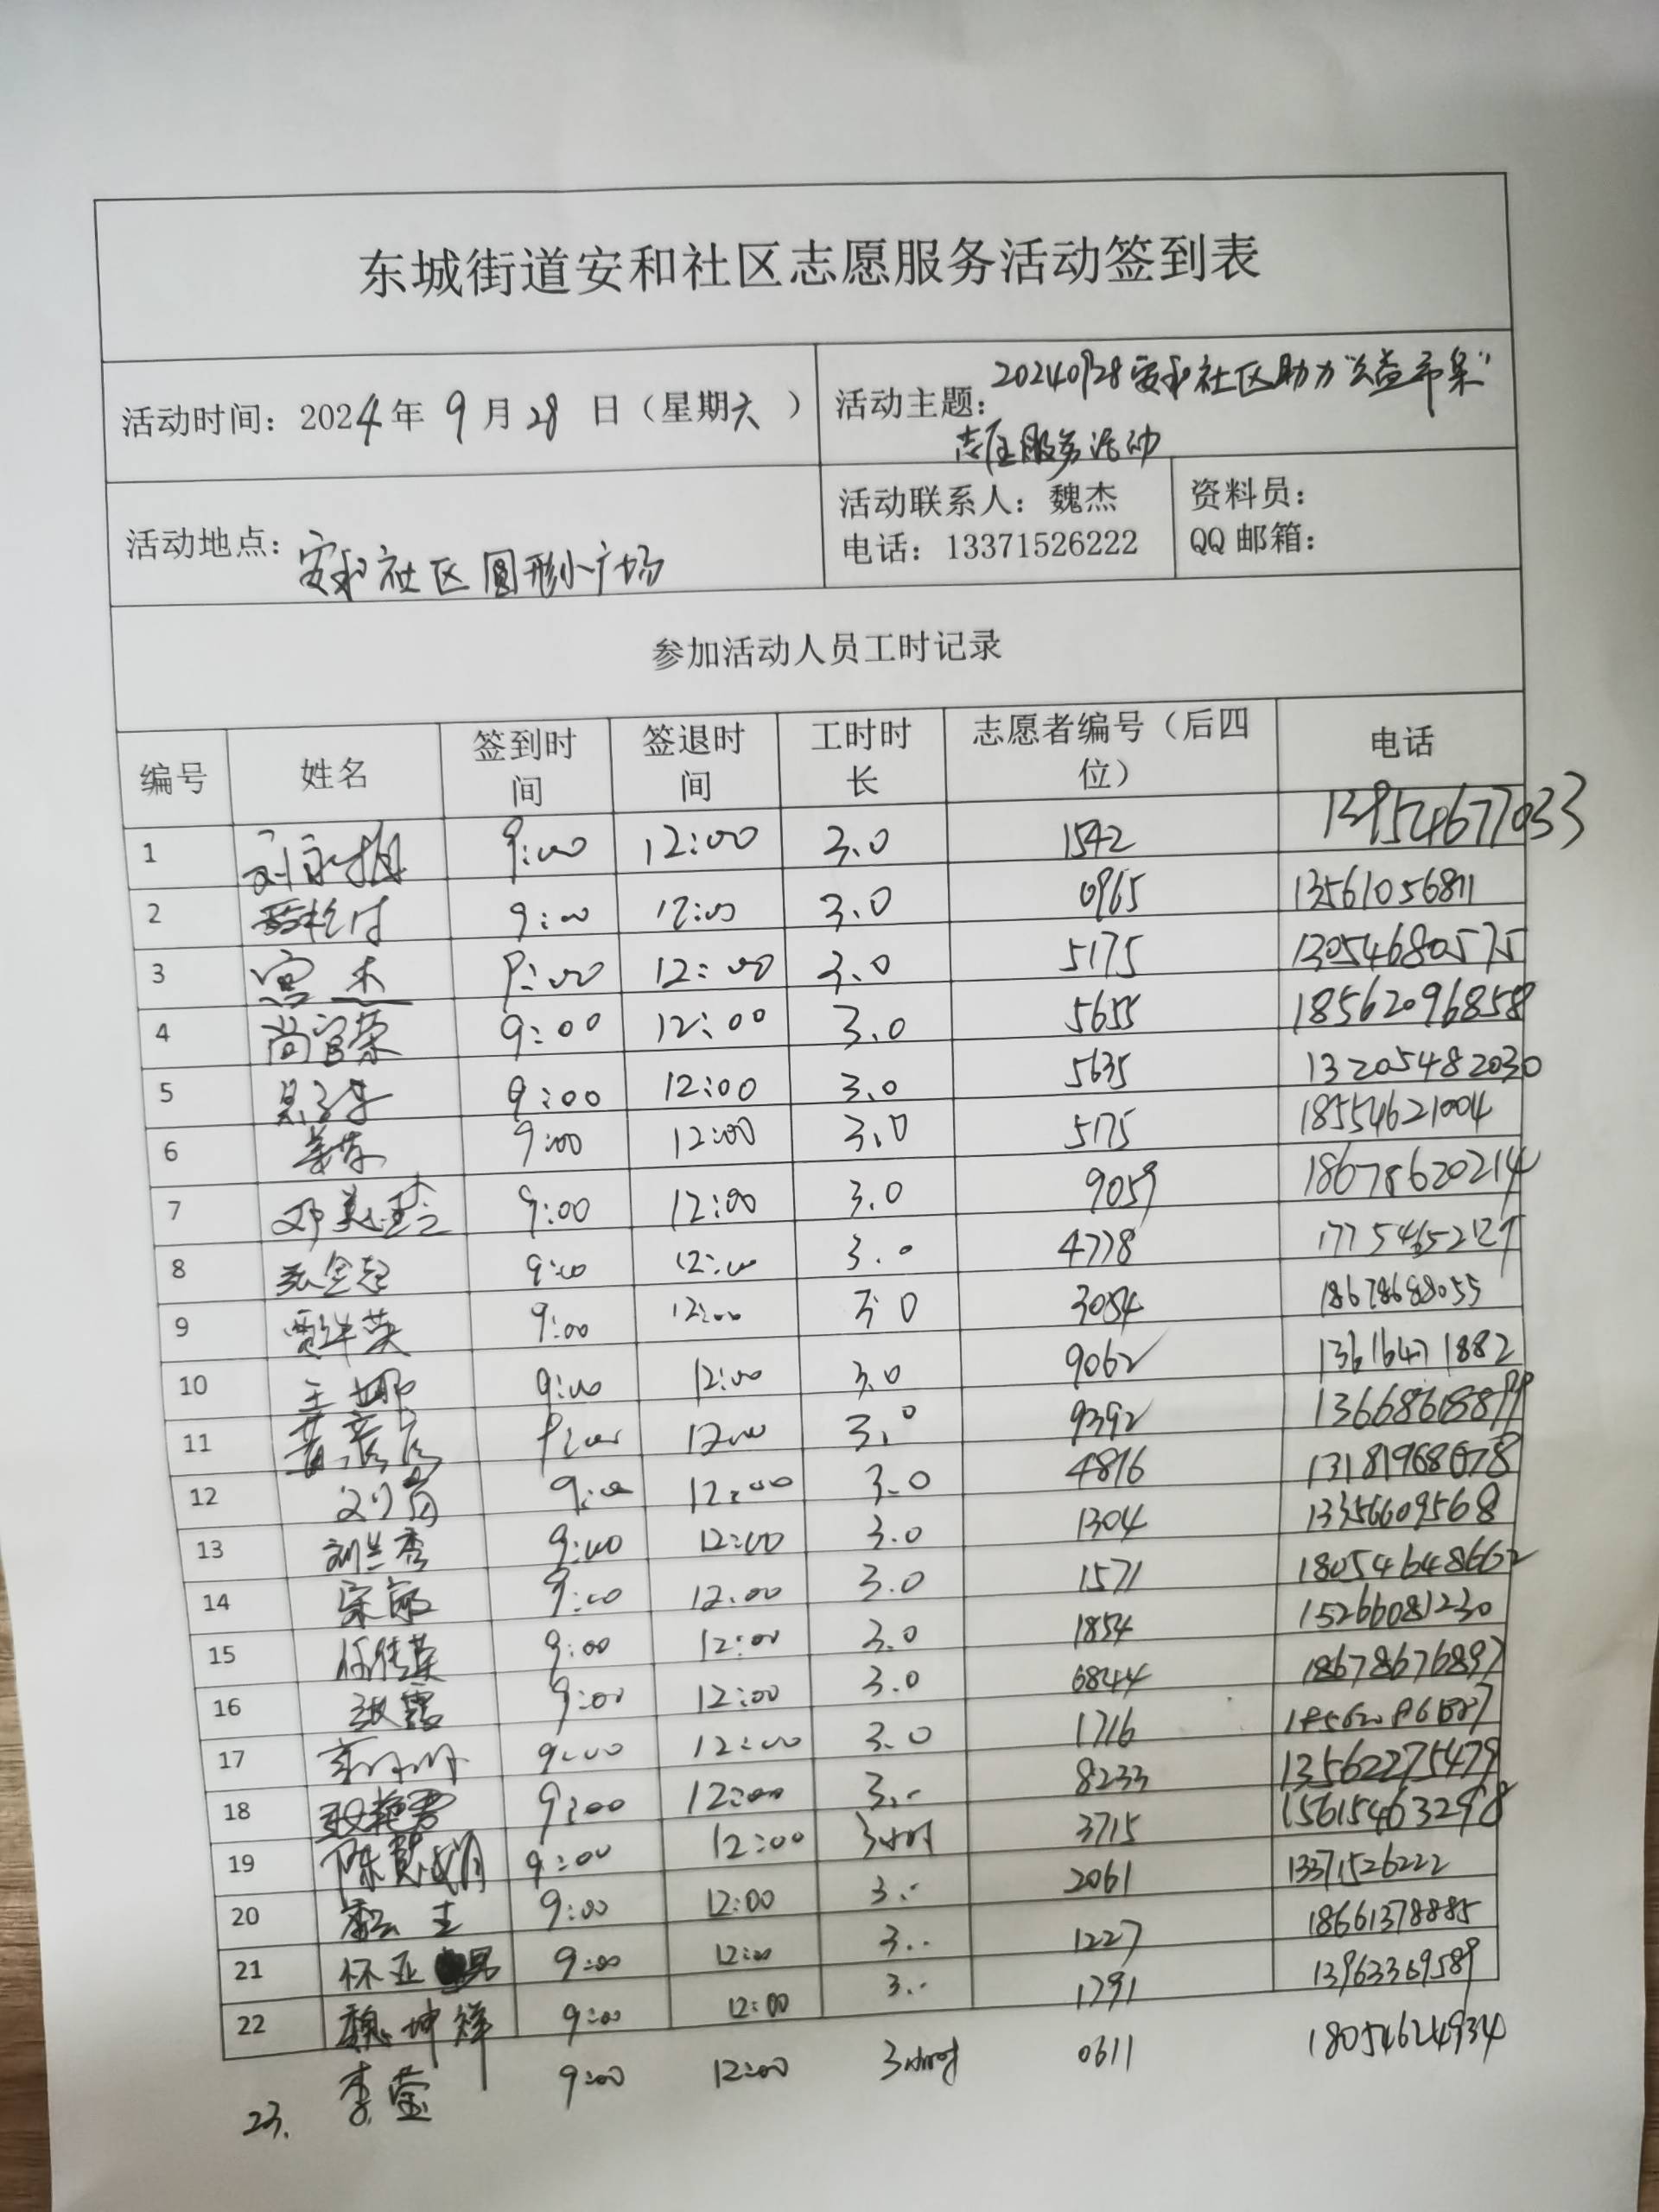 东城街道安和社区志愿服务活动签到表
活动时间：2024年 9月28日（星期六）
活动主题：20240928安和社区助力"公益市集"
志愿服务活动
活动地点：安和社区圆形小广场
活动联系人：魏杰
电话：13371526222
资料员：
QQ邮箱：
参加活动人员工时记录
编号 姓名 签到时间 签退时间 工时时长 志愿者编号（后四位） 电话
1 9:00 12:00 3.0 1542 13954677033
2 9:00 12:00 3.0 0965 13561056811
3 宫杰 9:00 12:00 3.0 5175 13054680575
4 尚官荣 9:00 12:00 3.0 5655 18562096858
5 9:00 12:00 3.0 5635 13205482030
6 9:00 12:00 3.0 5175 18554621004
7 邓美玲 9:00 12:00 3.0 9059 18678620214
8 张金超 9:00 12:00 3.0 4778
9 9:00 12:00 3.0 3054 18678688055
10 王娜 9:00 12:00 3.0 9062 13616471882
11 9:00 12:00 3.0 9392
12 9:00 12:00 3.0 4816
13 刘兰香 9:00 12:00 3.0 1304 13356609568
14 宋丽 9:00 12:00 3.0 1571 18054648662
15 任传英 9:00 12:00 3.0 1854 15266081230
16 张霞 9:00 12:00 3.0 6844 18678676897
17 9:00 12:00 3.0 1716
18 9:00 12:00 3.- 8233 13562275479
19 陈贺娟 9:00 12:00 3小时 3715 15615463298
20 9:00 12:00 3.- 2061 13371526222
21 怀亚 9:00 12:00 3.. 1227 18661378885
22 魏坤祥 9:00 12:00 3.- 1791 13963369589
23. 李莹 9:00 12:00 3小时 0611 18054624934